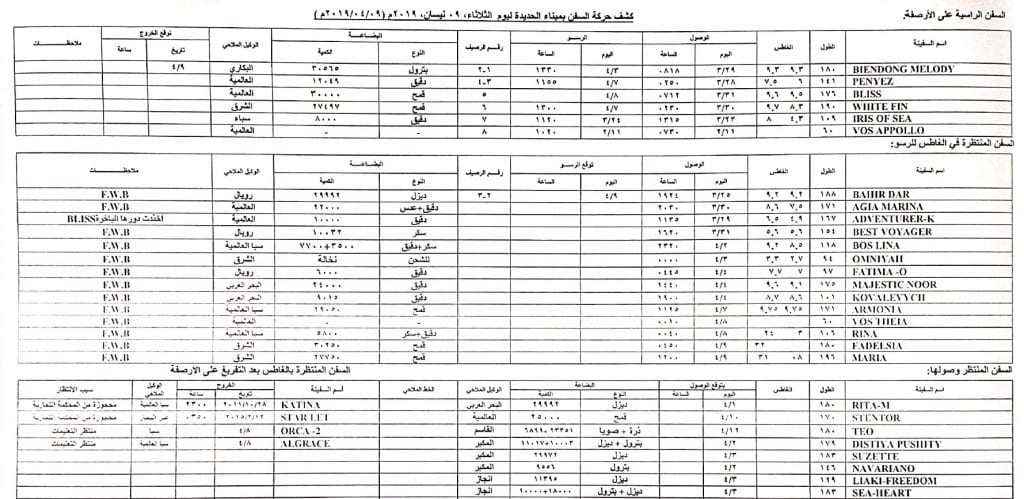 السفن الراسية على الأرصفة:
كشف حركة السفن بميناء الحديدة ليوم الثلاثاء، ٠٩ نيسان، ٢٠١٩م (٢٠١٩/٠٤/٠٩م)
اسم السفينة الطول الغاطس الوصول الرسو رقم الرصيف البضاعة الوكيل الملاحي توقع الخروج ملاحظات
اليوم الساعة اليوم الساعة النوع الكمية تاريخ ساعة
BIENDONG MELODY ١٨٠ ٩,٣ ٩,٣ ٣/٢٩ ٠٨١٨ ٤/٣ ١٣٣٠ ٢-١ بترول ٣٠٥٦٥ البكاري ٤/٩
PENYEZ ١٤١ ٦ ٧,٥ ٣/٢٨ ٠٢٥٠ ٤/٧ ١١٥٥ ٤-٣ دقيق ١٢٠٤٩ العالمية
BLISS ١٧٦ ٩,٥ ٩,٦ ٣/٣١ ٠٧١٢ ٤/٨ ٥ قمح ٣٠٠٠٠ العالمية
WHITE FIN ١٩٠ ٨,٣ ٩,٧ ٣/٣٠ ٠٢٣٠ ٤/٧ ١٣٠٠ ٦ قمح ٢٧٤٩٧ الشرق
IRIS OF SEA ١٠٩ ٤,٣ ٨ ٣/٢٣ ١٣١٥ ٣/٢٤ ١١٢٠ ٧ دقيق ٨٠٠٠ سباء
VOS APPOLLO ٦٠ ٢/١١ ٠٧٣٠ ٢/١١ ١٠٢٠ ٨ - - العالمية
السفن المنتظرة في الغاطس للرسو:
اسم السفينة الطول الغاطس الوصول توقع الرسو رقم الرصيف البضاعة الوكيل الملاحي ملاحظات
اليوم الساعة اليوم الساعة النوع الكمية
BAHIR DAR ١٨٨ ٩,٢ ٩,٢ ٣/٢٥ ١٩٢٤ ٤/٩ ٣-٢ ديزل ٢٩٩٩٢ رويال F.W.B
AGIA MARINA ١٧١ ٧,٥ ٨,٦ ٣/٣٠ ٢٠٣٠ دقيق+عدس ٢٢٠٠٠ العالمية F.W.B
ADVENTURER-K ١٦٧ ٤,٩ ٦,٥ ٣/٢٩ ١١٣٥ دقيق ١٠٠٠٠ العالمية اخذت دورها الباخرة BLISS
BEST VOYAGER ١٥٤ ٥,٦ ٥,٦ ٣/٣١ ١٦٢٠ سكر ١٠٠٣٢ رويال F.W.B
BOS LINA ١١٨ ٨,٥ ٩,٢ ٤/٢ ٢٣٢٠ سكر+دقيق ٣٥٠٠+٧٧٠٠ سبا العالمية F.W.B
OMNIYAH ٩٤ ٢,٧ ٣,٣ ٤/٣ ٠٠٠٠ للشحن نخالة الشرق F.W.B
FATIMA -O ٩٧ ٧ ٧,٧ ٤/٤ ٠٤٤٥ دقيق ٦٠٠٠ رويال F.W.B
MAJESTIC NOOR ١٧٥ ٩,١ ٩,٦ ٤/٤ ١٤٤٠ دقيق ٢٤٠٠٠ البحر العربي F.W.B
KOVALEVYCH ١٠١ ٨,٦ ٨,٧ ٤/٤ ١٩٠٠ دقيق ٩٠١٥ البحر العربي F.W.B
ARMONIA ١٧١ ٩,٧٥ ٩,٧٥ ٤/٧ ١١٢٥ قمح ٢٩٠٥٠ سبا العالمية F.W.B
VOS THEIA ٦٠ ٤/٨ ٠٠١٠ - - العالمية F.W.B
RINA ١٠٦ ٣ ٢٤ ٤/٨ ٠٠٤٠ دقيق+سكر ٥٨٠٠ سبا العالمية F.W.B
FADELSIA ١٨٠ ٣٢ ٤/٩ ٠٤٥٠ قمح ٣٠٢٥٠ الشرق F.W.B
MARIA ١٩٦ ٠٨ ٣١ ٤/٩ ١٢٠٠ قمح ٢٧٧٥٠ الشرق F.W.B
السفن المنتظر وصولها:
السفن المنتظرة بالغاطس بعد التفريغ على الأرصفة
اسم السفينة الطول الغاطس يتوقع الوصول البضاعة الوكيل الملاحي الخط الملاحي اسم السفينة الخروج الوكيل الملاحي سبب الانتظار
اليوم الساعة النوع الكمية تاريخ ساعة
RITA-M ١٨٠ ٤/١ ديزل ٢٩٩٩٢ البحر العربي KATINA ٢٠١٦/١٠/٢٨ ٢٣٠٠ سبا العالمية محجوزة من المحكمة التجارية
STENTOR ١٧٠ ٤/١٠ قمح ٢٥٠٠٠ العالمية STAR LET ٢٠١٥/٢/١٢ ٠٣٥٠ محجوزة من المحكمة التجارية
TEO ١٨٠ ٤/١٢ ذرة + صويا القاسم ORCA -2 ٤/٨ سبا منتظر التعليمات
DISTIYA PUSHITY ١٧٩ ٤/٢ بترول + ديزل ١٠٠٠٣+١١٠١٧ المكبر ALGRACE ٤/٨ سبا العالمية منتظر التعليمات
SUZETTE ١٨٣ ٤/٣ ديزل ٢٩٩٧٢ المكبر
NAVARIANO ١٤٦ ٤/٢ بترول ٩٥٥٦ المكبر
LIAKI-FREEDOM ١٤٩ ٤/٣ ديزل ١١٣٩٥ انجاز
SEA-HEART ١٨٣ ٤/٣ ديزل + بترول ١٨٠٠٠+١٠٠٠٠ انجاز